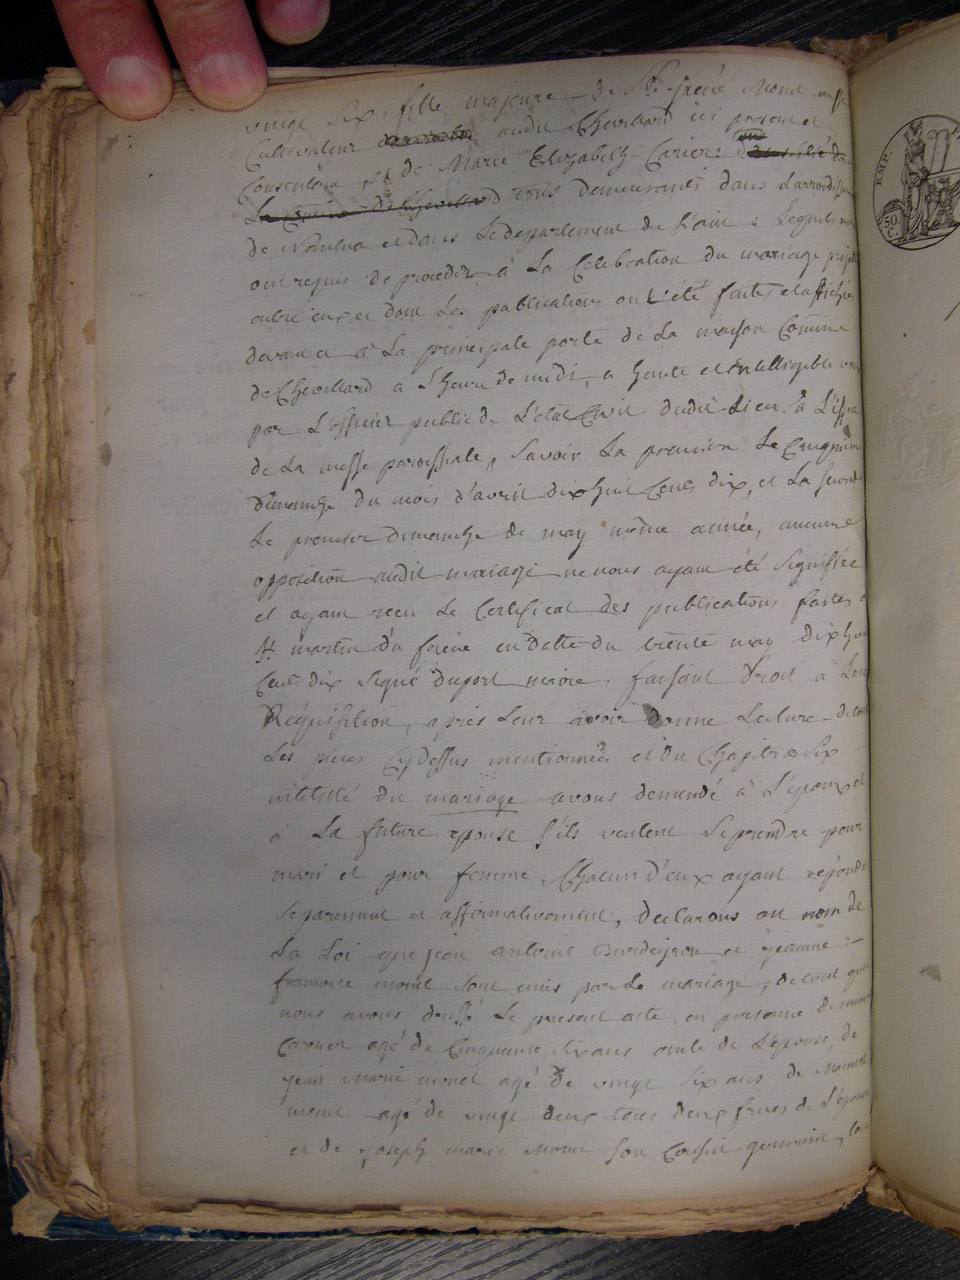 vingt six, fille majeure de Sr. Irené Monet aussi
Cultivateur audit Chevillard ici present et
Consentent et de Marie Elizabeth Carier
tous demeurants dans L'arrondissem
de Nantua et dans Le departement de L'ain Lequels nous
ont requis de proceder à La Celebration du mariage projetté
entre eux et dont Les publications ont été faites et affichées
devant et à La principale porte de La maison Commune
de Chevillard a L'heure de midi, a haute et intelligible voix
par L'officier public de L'état Civil dudit Lieu à L'issue
de La messe paroissiale, Savoir La premiere Le Cinquieme
Dimanche du mois d'avril dix huit Cents dix, et La seconde
Le premier dimanche de may même année, aucune
opposition audit mariage ne nous ayant été Signifiée
et ayant reçu Le Certificat des publications faites a
St. martin du frêne en Datte du trente may dix huit
Cents dix Signé duport maire, faisant Droit à Leur
Réquisition, après Leur avoir Donné Lecture de toutes
Les pieces Cydessus mentionnées et du Chapitre Six
intitulé du mariage avons demandé à L'époux et
à La future epouse s'ils veulent Se prendre pour
mari et pour femme, Chacun d'eux ayant répondu
Separement et affirmativement, declarons au nom de
La Loi que jean antoine et jeanne
francoise monet sont unis par Le mariage, de tout quoi
nous avons dressé Le present acte, en presence de
Carrier agé de Cinquante six ans oncle de L'épouse, de
jean Marie monet agé de vingt Six ans de
monet agé de vingt deux tous deux freres de L'épouse
et de joseph marie Monet Son Cousin germain,
EMP.
50
C.